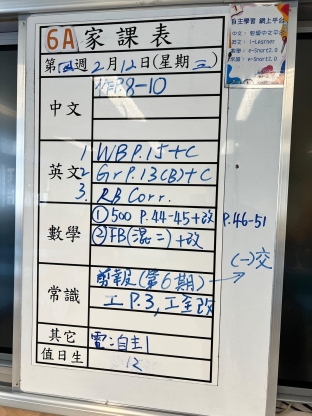 6A 家課表
第四週2月12日(星期三)
中文
作P.8-10
英文
1. WB P.15+C
2. Gr P.13(B)+C
3. RB Corr.
數學
①500 P.44-45+改 P.46-51
②FB(混二)+改
常識
剪報(第6期)→(一)交
工P.3,工全改
其它
電:自主1
值日生
12
自主學習 網上平台
英文: i-Learner
數學: e-Smart2.0
常識: e-Smart2.0